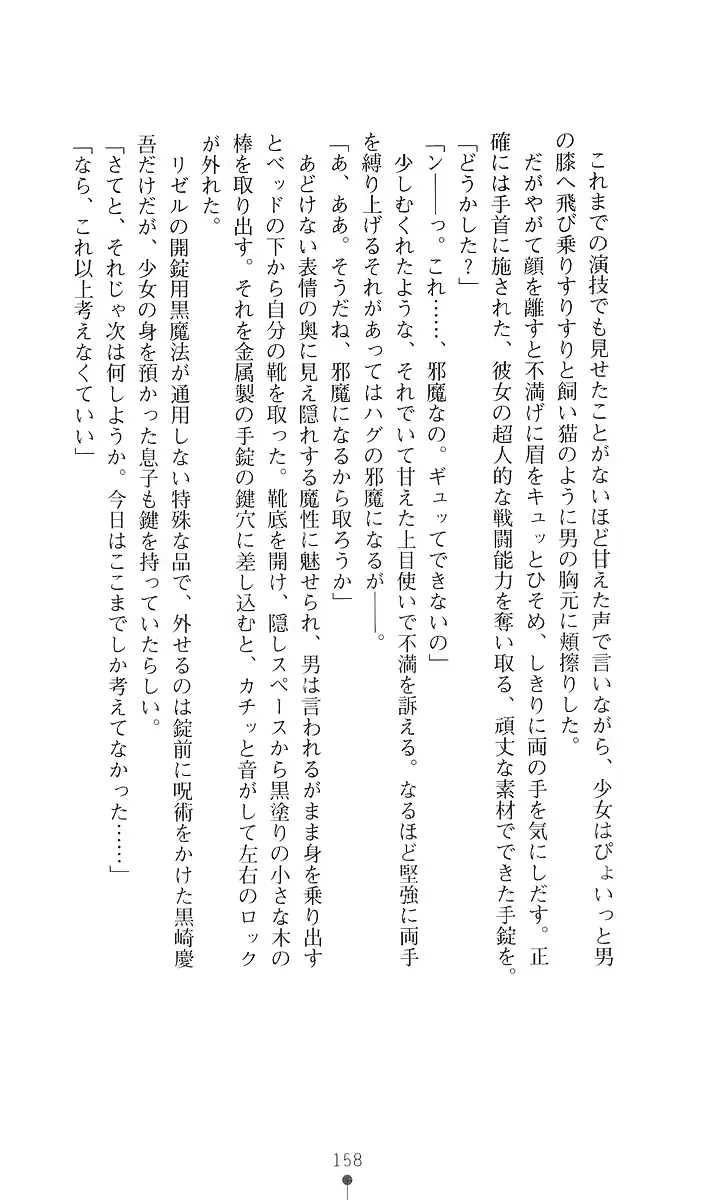 これまでの演技でも見せたことがないほど甘えた声で言いながら、少女はぴょいっと男
の膝へ飛び乗りすりすりと飼い猫のように男の胸元に頬擦りした。
だがやがて顔を離すと不満げに眉をキュッとひそめ、しきりに両の手を気にしだす。正
確には手首に施された、彼女の超人的な戦闘能力を奪い取る、頑丈な素材でできた手錠を。
「どうかした？」
「ン――っ。これ……、邪魔なの。ギュッてできないの」
少しむくれたような、それでいて甘えた上目使いで不満を訴える。なるほど堅強に両手
を縛り上げるそれがあってはハグの邪魔になるが――。
「あ、ああ。そうだね、邪魔になるから取ろうか」
あどけない表情の奥に見え隠れする魔性に魅せられ、男は言われるがまま身を乗り出す
とベッドの下から自分の靴を取った。靴底を開け、隠しスペースから黒塗りの小さな木の
棒を取り出す。それを金属製の手錠の鍵穴に差し込むと、カチッと音がして左右のロック
が外れた。
リゼルの開錠用黒魔法が通用しない特殊な品で、外せるのは錠前に呪術をかけた黒崎慶
吾だけだが、少女の身を預かった息子も鍵を持っていたらしい。
「さてと、それじゃ次は何しようか。今日はここまでしか考えてなかった……」
「なら、これ以上考えなくていい」
158